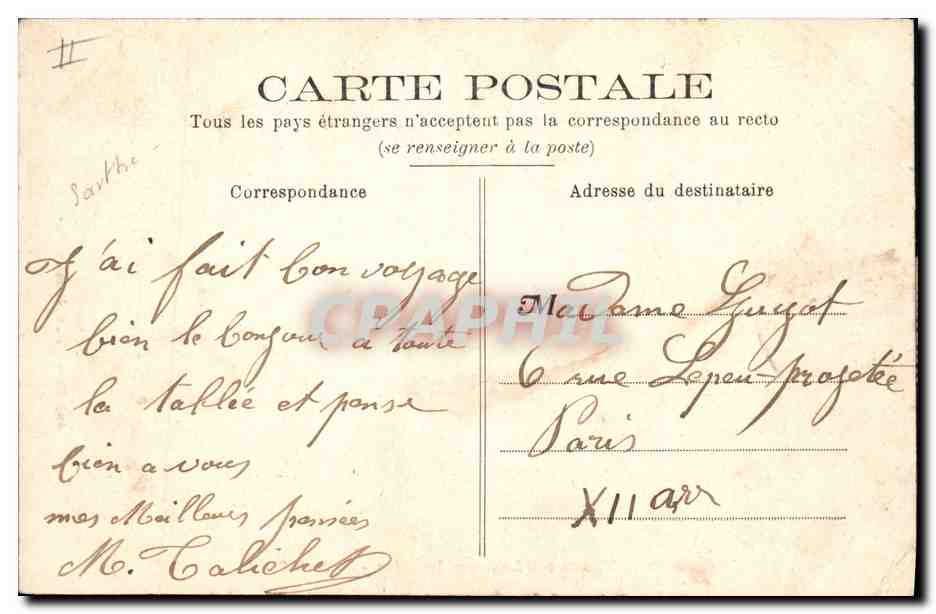 II
CARTE POSTALE
Tous les pays étrangers n'acceptent pas la correspondance au recto
(se renseigner à la poste)
Sarthe
Correspondance
J'ai fait bon voyage
bien le bonjour à toute
la tablée et pense
bien a vous
mes Meilleures pensées
M. Talichet
Adresse du destinataire
Madame Guyot
6 rue Lepeu-projetée
Paris
XII arr
CPAPHIL